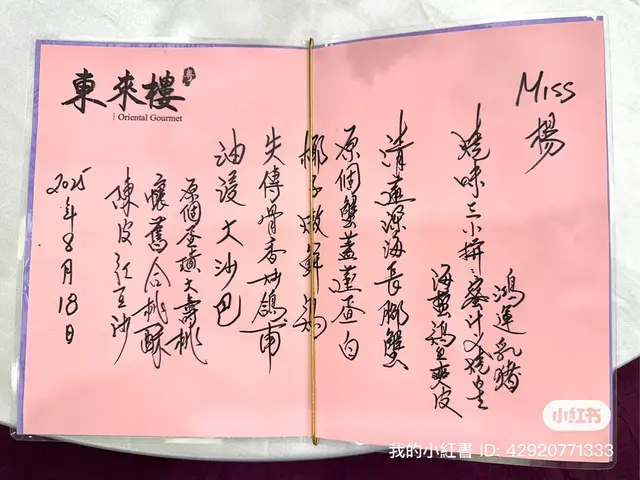 Miss
楊
燒味三小拼：蜜汁叉燒皇
鴻運乳豬
海蜇
爽皮
清蒸深海長腳蟹
原個蟹蓋蒸蛋白
椰子燉鮮鷄
失傳骨香炒鴿甫
油浸大沙巴
原個蛋黃大壽桃
懷舊合桃酥
陳皮紅豆沙
2025年8月18日
東來樓
Oriental Gourmet
小红书
我的小紅書 ID: 42920771333